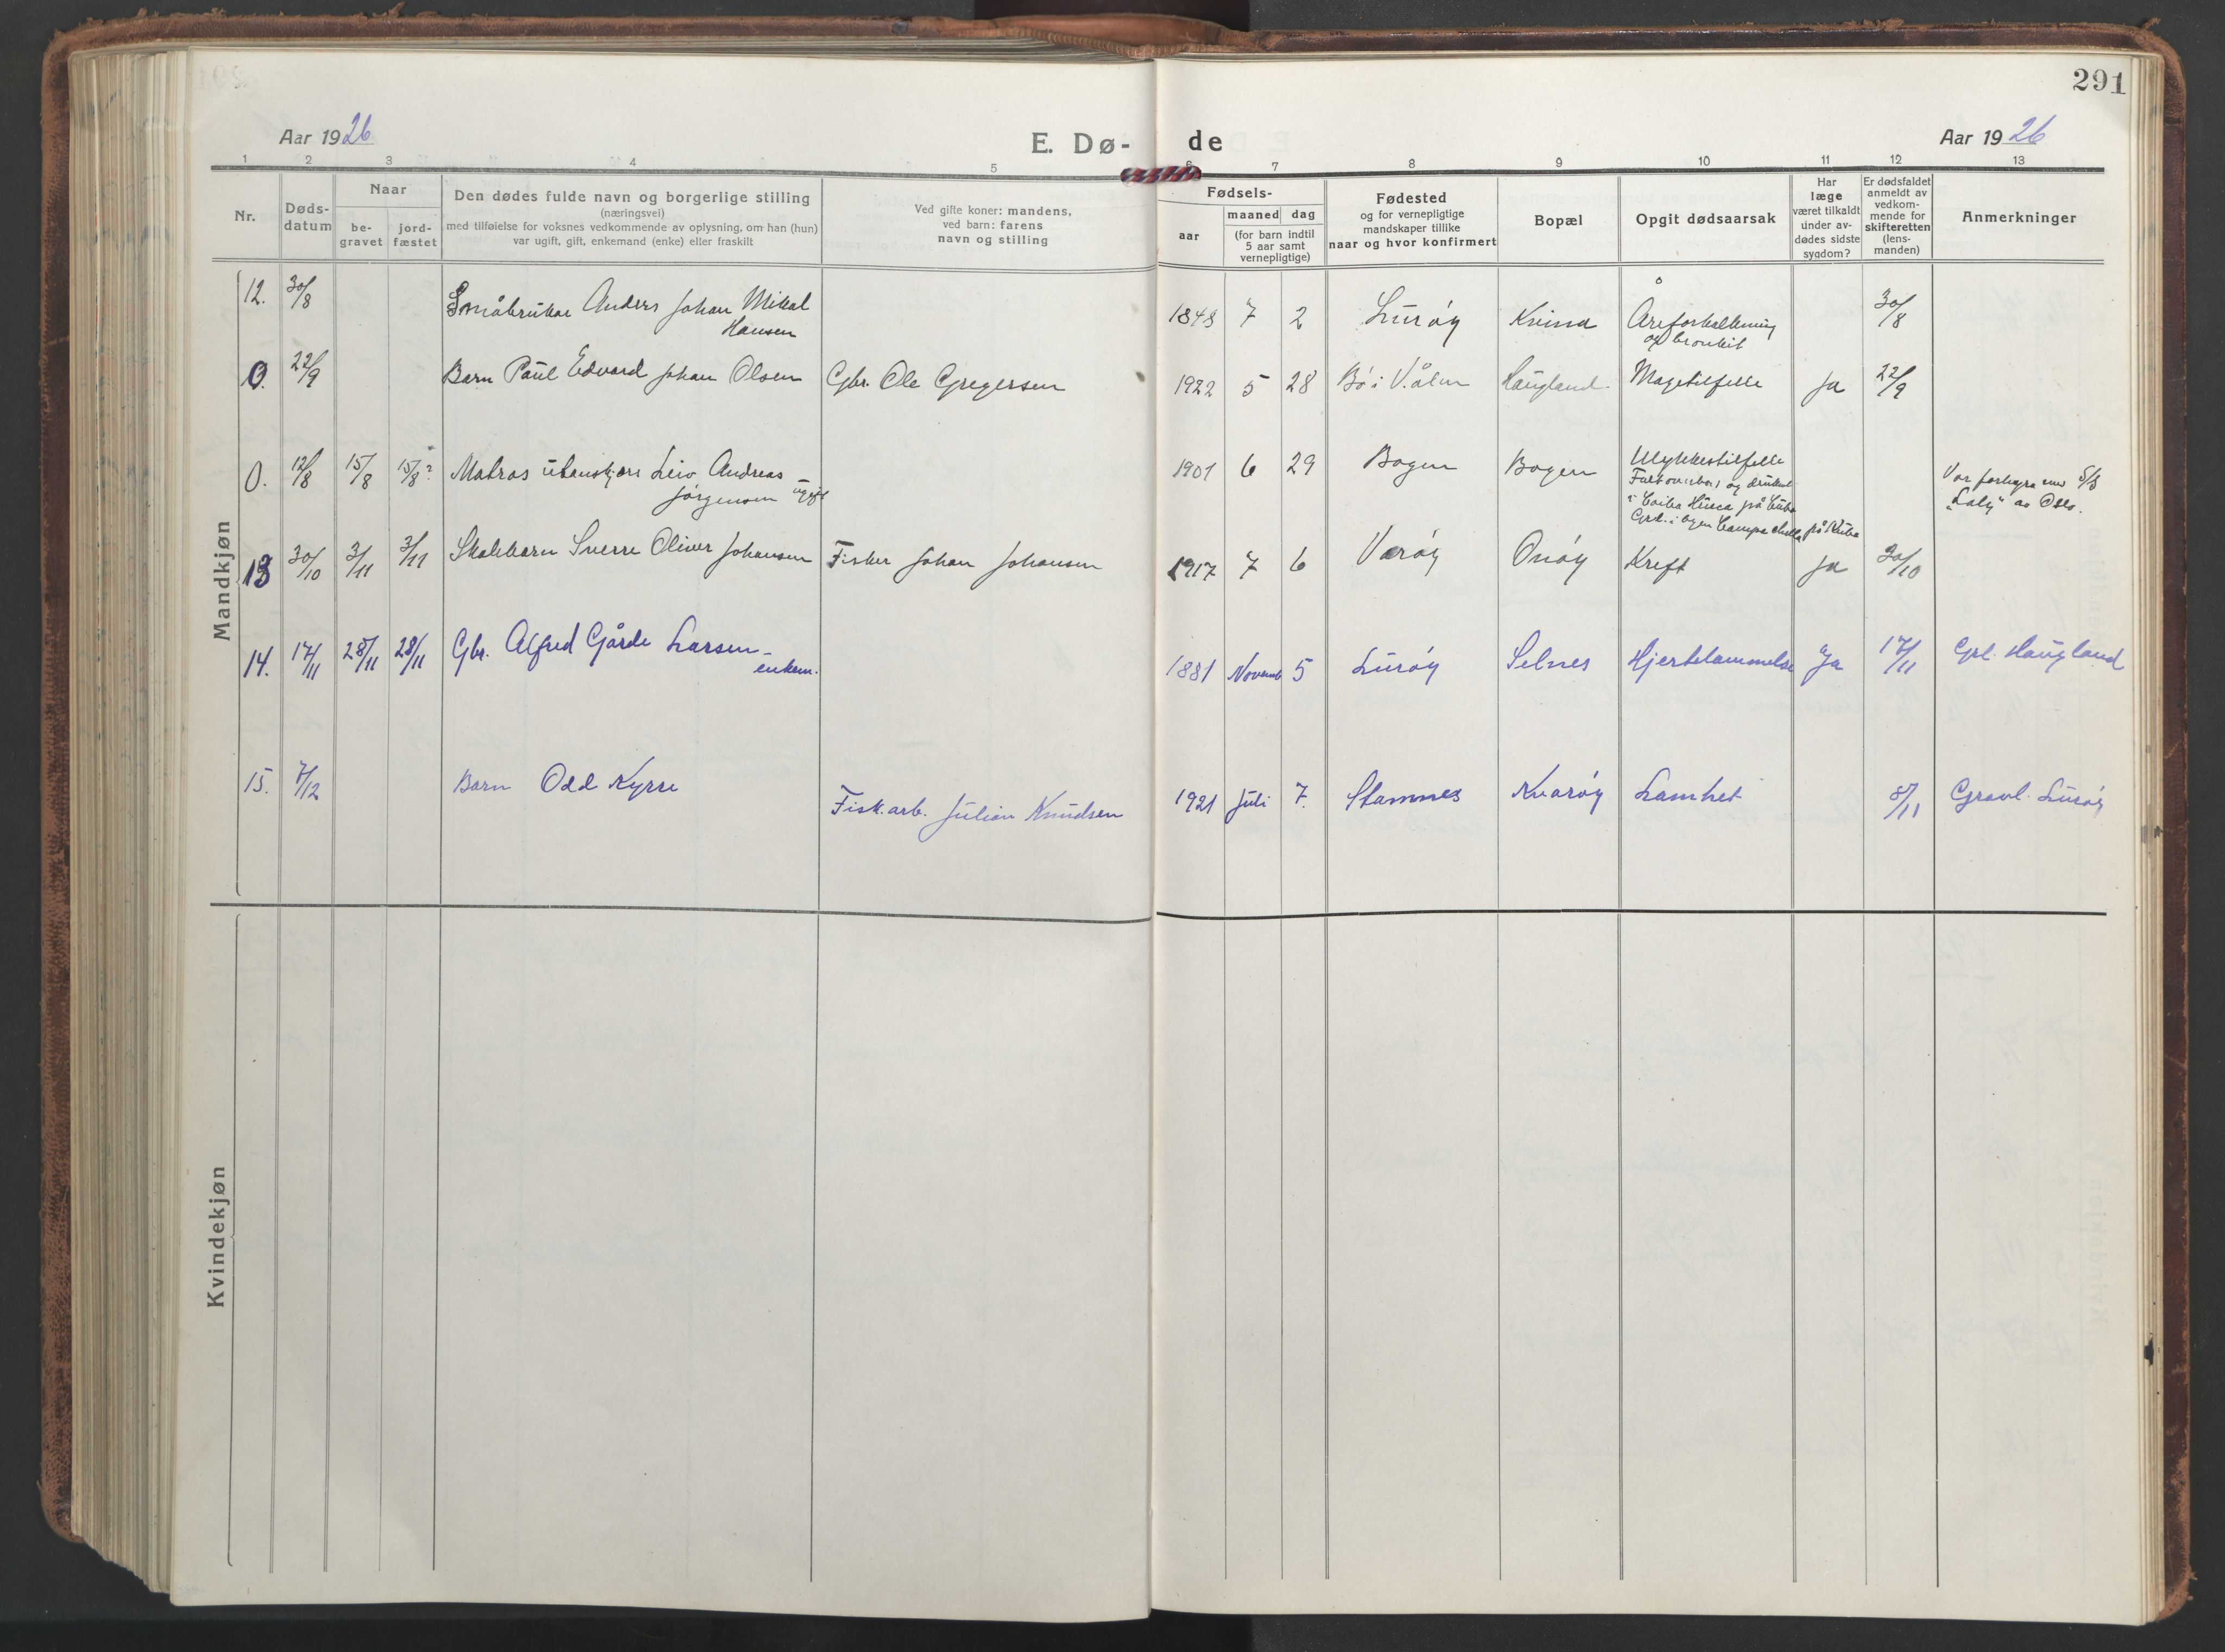 291
Aar 1926
E. Dø-
de
Aar 1926
1 2 3 4 5 6 7 8 9 10 11 12 13
Nr.
Døds-
datum
Naar
be-
gravet
jord-
fæstet
Den dødes fulde navn og borgerlige stilling
(næringsvei)
med tilføielse for voksnes vedkommende av oplysning, om han (hun)
var ugift, gift, enkemand (enke) eller fraskilt
Ved gifte koner: mandens,
ved barn: farens
navn og stilling
Fødsels-
aar
maaned dag
(for barn indtil
5 aar samt
vernepligtige)
Fødested
og for vernepligtige
mandskaper tillike
naar og hvor konfirmert
Bopæl
Opgit dødsaarsak
Har
læge
været tilkaldt
under av-
dødes sidste
sygdom?
Er dødsfaldet
anmeldt av
vedkom-
mende for
skifteretten
(lens-
manden)
Anmerkninger
Mandkjøn
12. 30/8 Småbruker Anders Johan Mikal
Hansen
1848 7 2 Lurøy Kvina Åreforkalkning
og bronkit
30/8
0. 22/9 Barn Paul Edvard Johan Olsen Gbr. Ole Gregersen 1922 5 28 Bø i Haugland Magetilfelle Ja 22/9
0. 12/8 15/8 15/8? Matros utenskjærs Leiv Andreas
Jørgensen ugift
1901 6 29 Bogen Bogen Ulykkestilfelle
Falt overbord og druknet
i på Cuba
Grl. i på Kuba
Var forhyrt med S/S
"Laly" av Oslo.
13 30/10 3/11 3/11 Skolebarn Sverre Oliver Johansen Fisker Johan Johansen 1917 7 6 Værøy Onøy Kreft Ja 30/10
14. 17/11 28/11 28/11 Gbr. Alfred Gårde Larsen -
enkem.
1881 Novemb 5 Lurøy Selnes Hjertelammelse Ja 17/11 Grl. Haugland
15. 7/12 Barn Odd Kyrre
Fisk.arb. Julian Knudsen 1921 Juli 7. Stamnes Kvarøy Lamhet 8/11 Gravl. Lurøy
Kvindekjøn